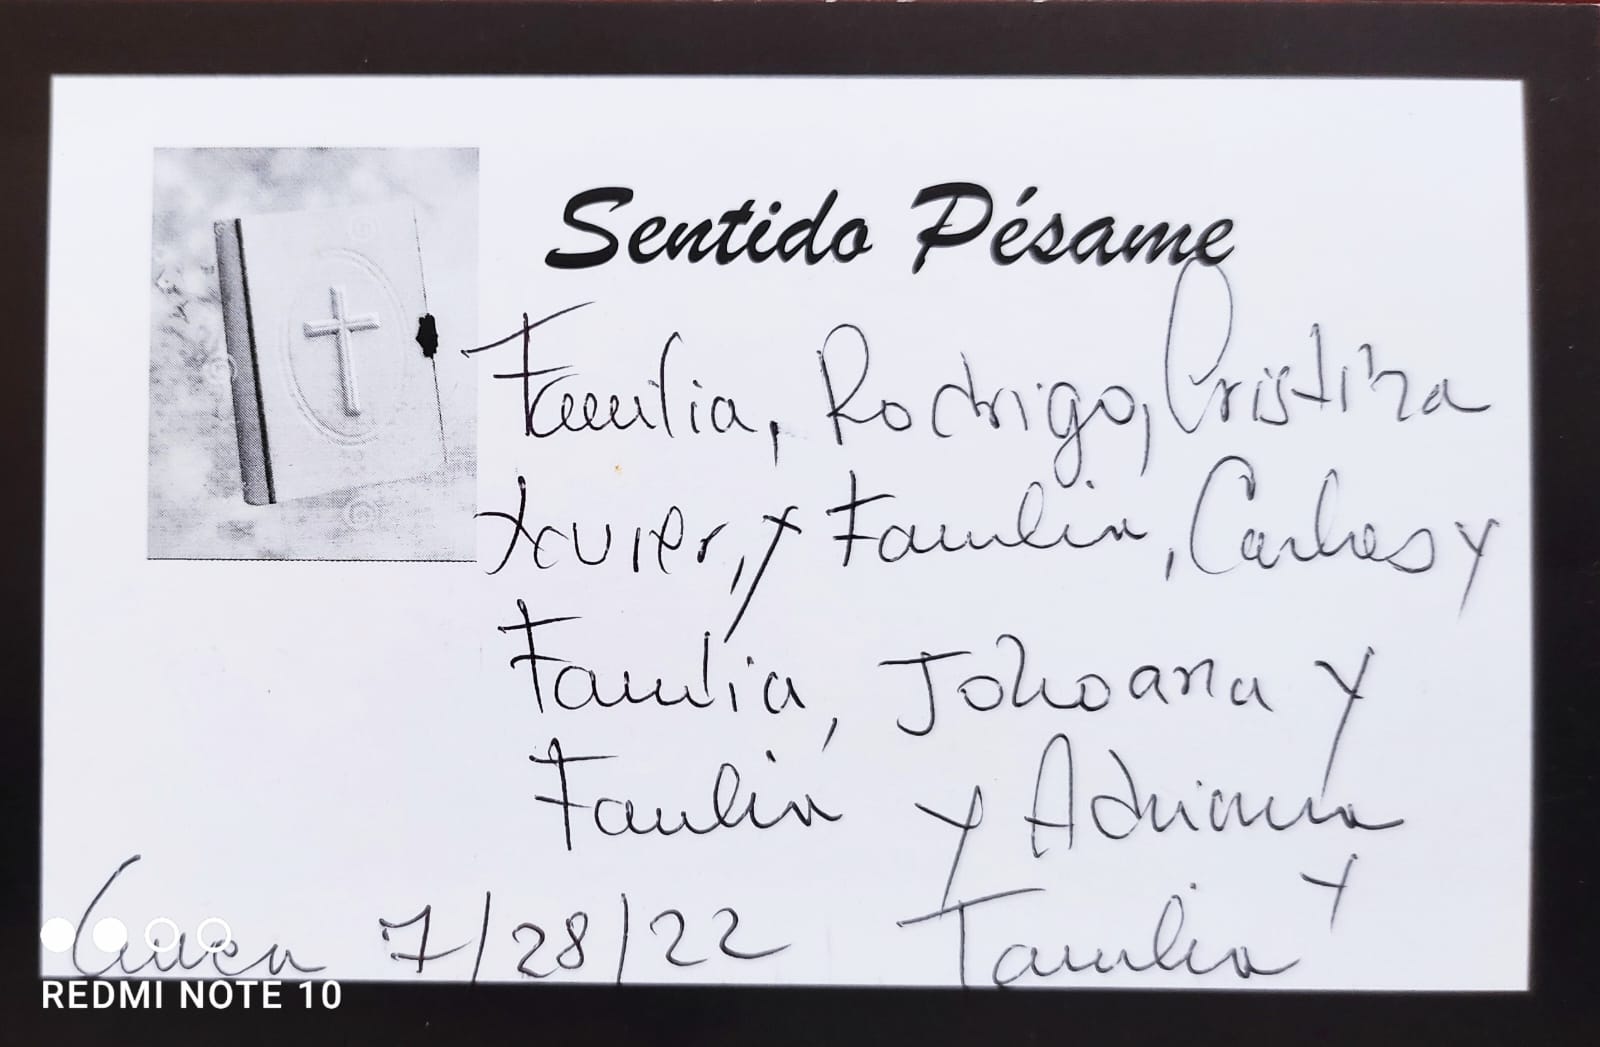 Sentido Pésame
Familia, Rodrigo, Cristina
Xavier, y Familia, Carlos y
Familia, Johoana y
Familia y Adriana
y
7/28/22 Familia
REDMI NOTE 10